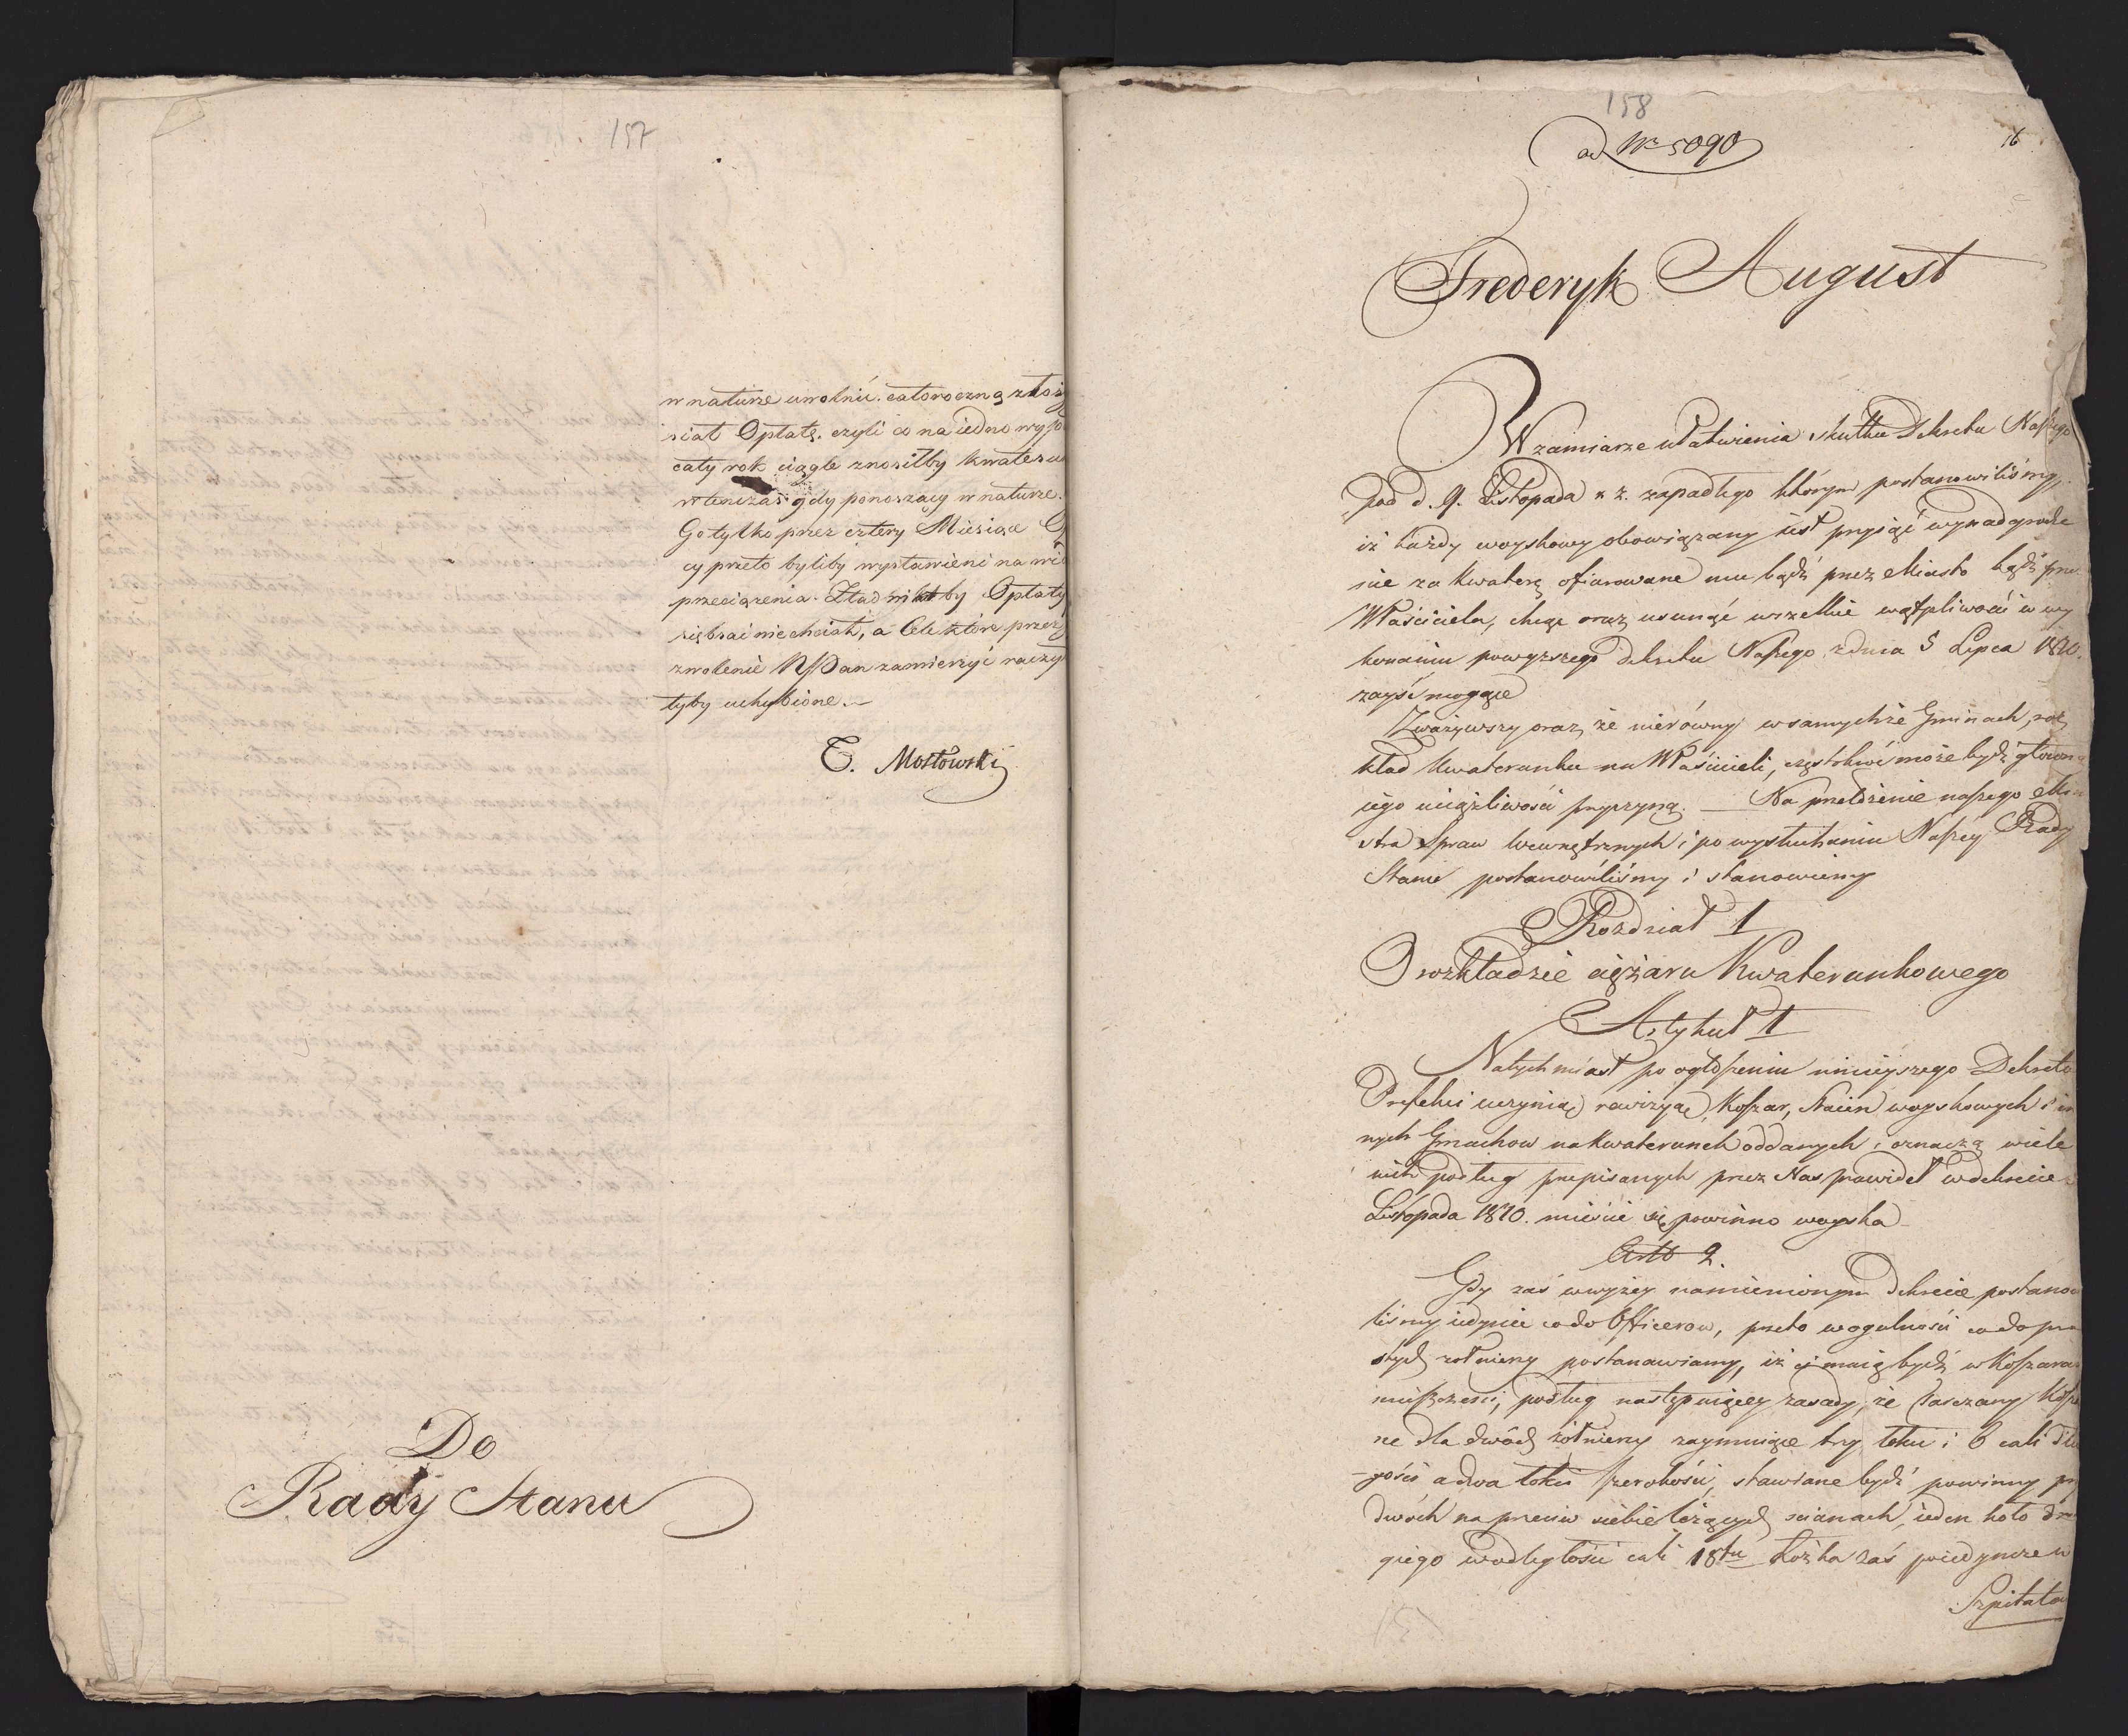 157
w naturze uwolnić. całoroczną złoży
siał Opłatę. czyli co na iedno wyp
cały rok ciągle znosiłby kwateru
wtenczas gdy ponoszący w naturze.
Go tylko przez cztery Miesiące
cy przeto byliby wystawieni na wi
przeciążenia. Ztad nikt by Opłaty
się brać niechciał, a Cele które przez
zwolenie NPan zamierzyć raczył
łyby uchybione.
T. Mostowski
Do
Rady Stanu
158
ad Nr 5090
16
Frederyk August
W zamiarze ułatwienia skutku Dekretu Naszego
pod d. 9. Listopada r. z. zapadłego którym postanowiliśmy,
iż każdy woyskowy obowiązany iest przyiąć wynadgrodze
nie za kwaterę ofiarowane mu bądź przez Miasto bądź prze
Właściciela, chcąc oraz usunąć wszelkie wątpliwości w wy
konaniu powyższego dekretu Naszego z dnia 5 Lipca 1810.
zayść mogące
Zważywszy oraz, że nierówny w samychże Gminach, roz
kład kwaterunku na Właścicieli, częstokroć może bydź głown
iego uciążliwości przyczyną. — Na przełożenie naszego Min
stra Spraw Wewnętrznych i po wysłuchaniu Naszey Rady
Stanu postanowiliśmy i stanowiemy
Rozdział 1
O rozkładzie ciężaru Kwaterunkowego
Artykuł 1
Natychmiast po ogłoszeniu ninieyszego Dekretu
Prefekci uczynią rewizyą Koszar, Staien woyskowych i in
nych Gmachow na kwaterunek oddanych i oznaczą wiele
nich podług przepisanych przez Nas prawideł w dekrecie
Listopada 1810. mieścić się powinno woyska
Artt 2.
Gdy zaś w wyżey namienionym dekrecie postanow
liśmy iedynie co do Officerow, przeto w ogulności co do pro
stych zołnierzy postanawiamy, iż ci maią bydź w Koszarac
umieszczeni, podług następuiącey zasady, że Tarczany Kosza
ne dla dwóch żołnierzy zaymuiące trzy łokci i 6 cali dłu
gości a dwa łokci szerokości, stawiane bydź powinny przy
dwóch naprzeciw siebie leżących scianach, ieden koło dru
giego w odległości cali 18tu Łóżka zaś poiedyncze w
Szpitala